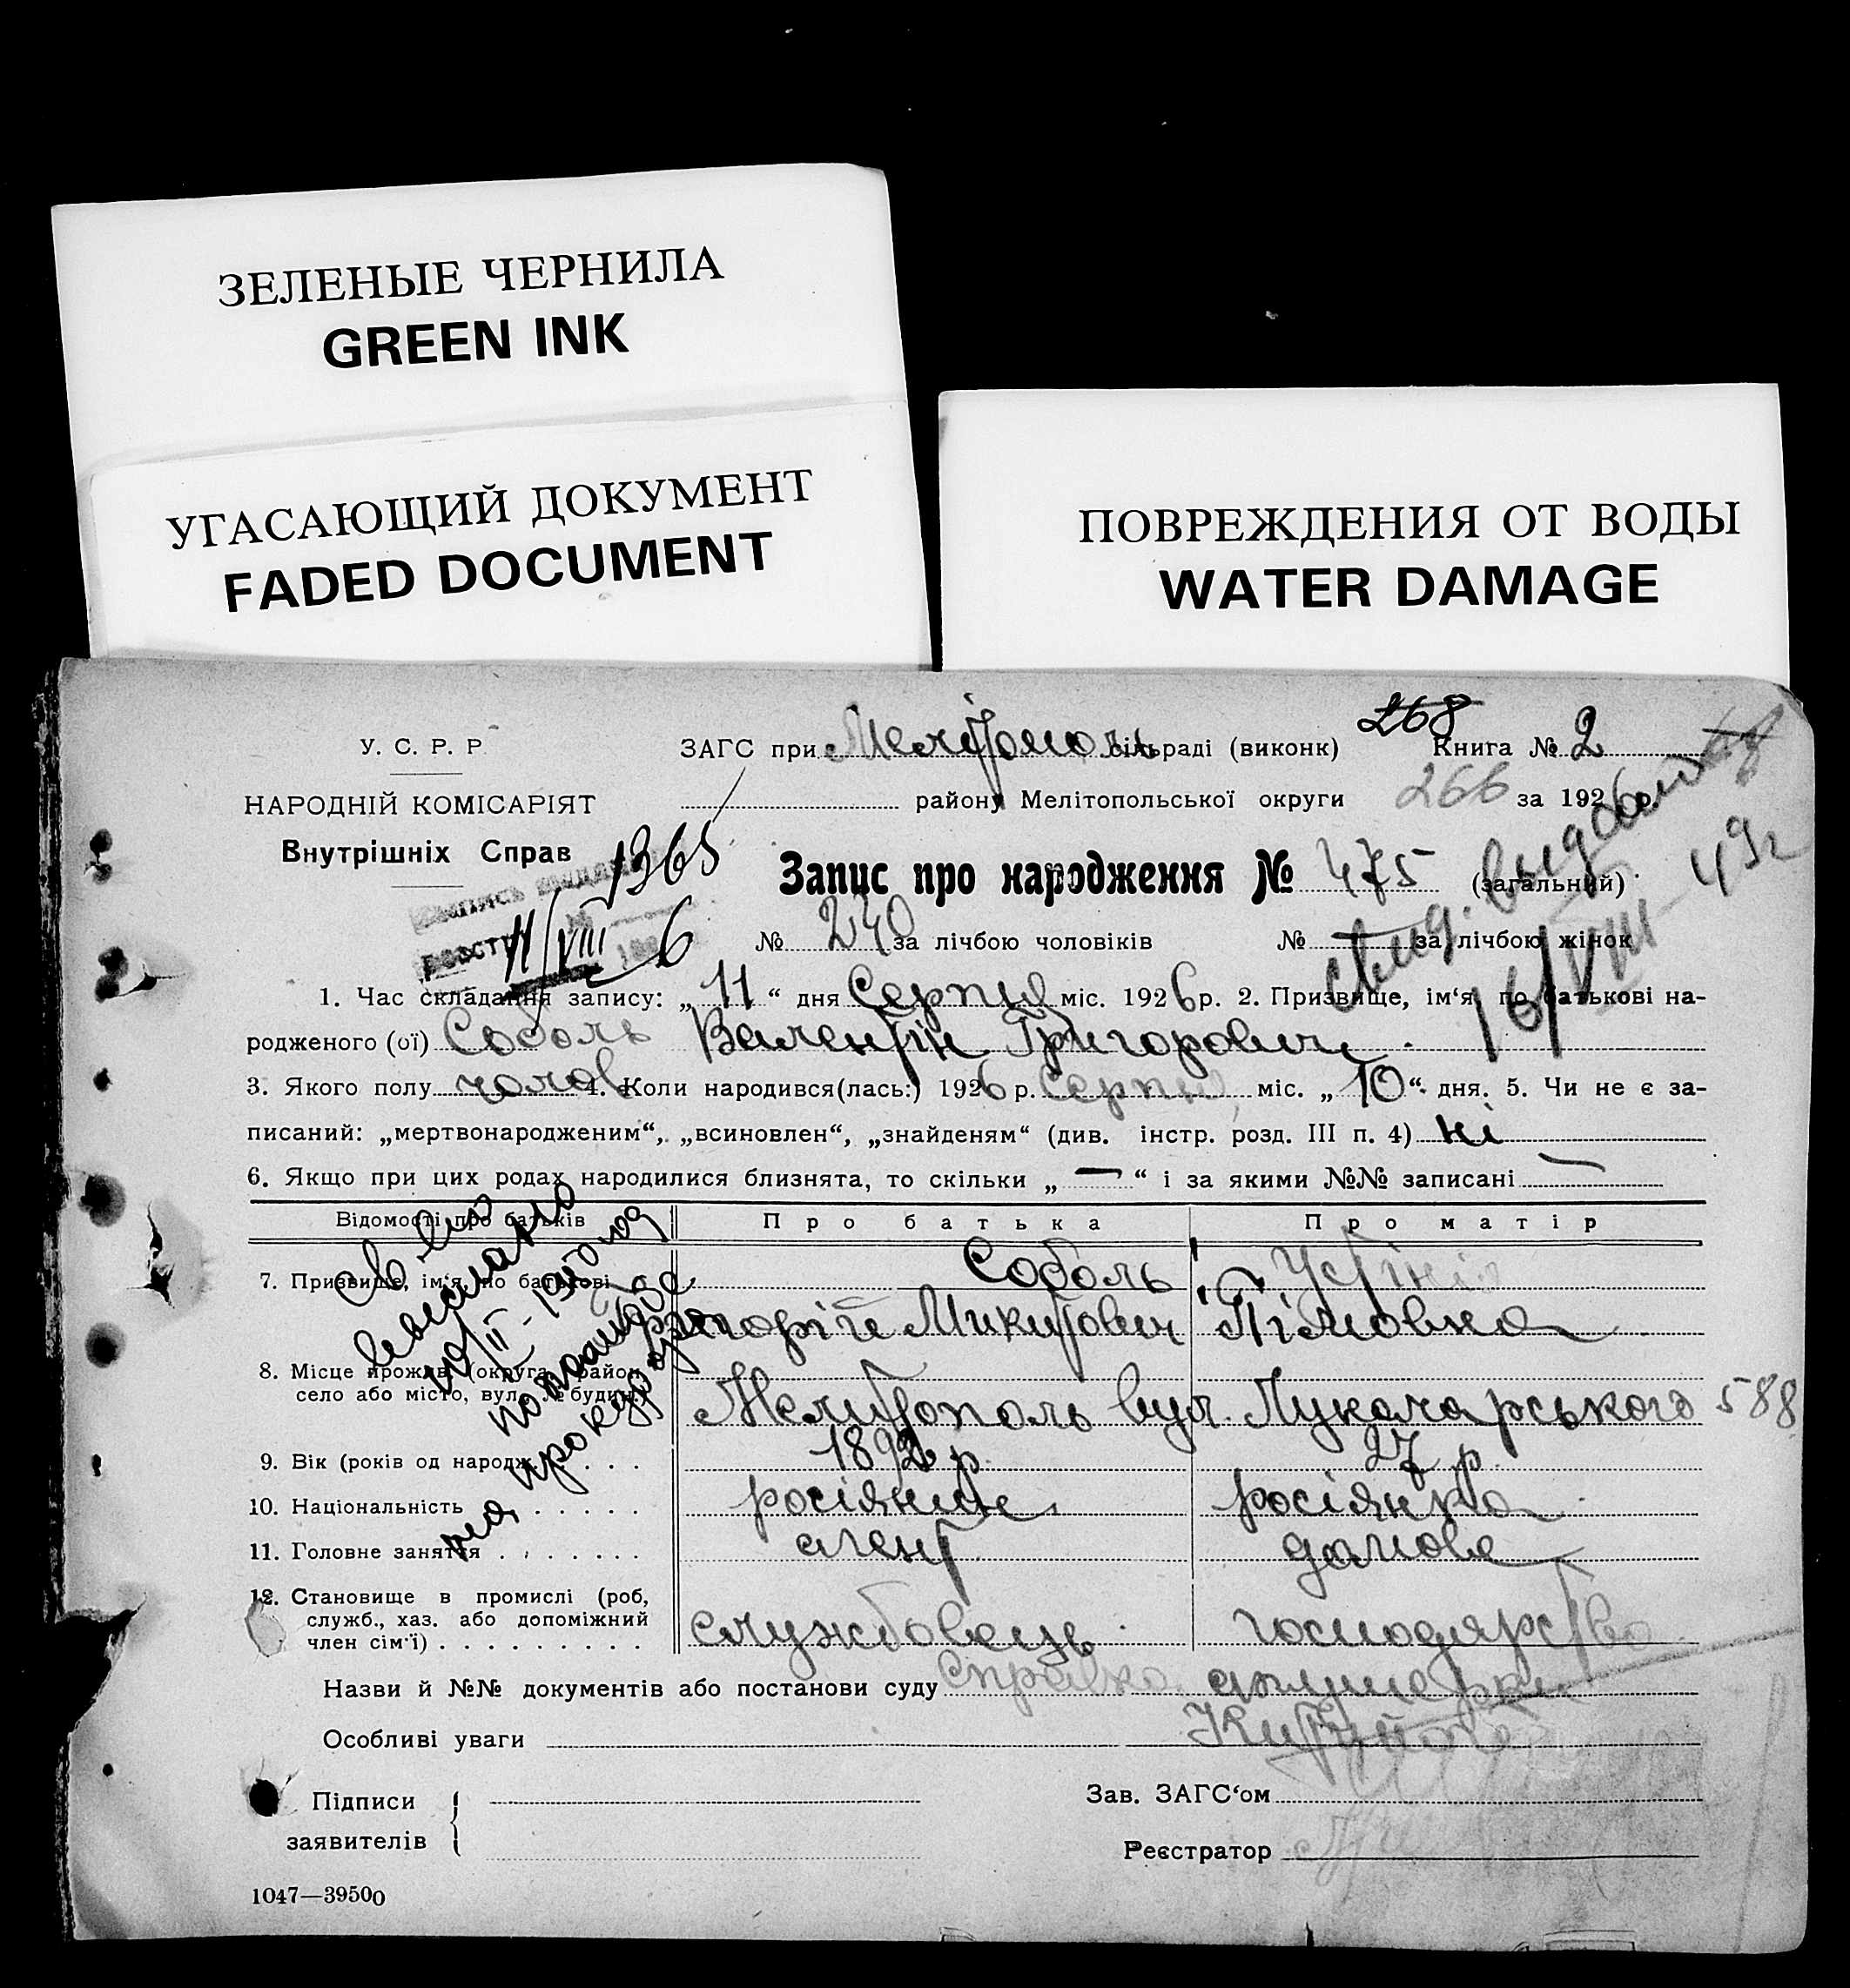 ЗЕЛЕНЫЕ ЧЕРНИЛА
GREEN INK
УГАСАЮЩИЙ ДОКУМЕНТ
FADED DOCUMENT
ПОВРЕЖДЕНИЯ ОТ ВОДЫ
WATER DAMAGE
268
У. С. Р. Р.
ЗАГС при Мелітополь сільраді (виконк) Книга № 2
НАРОДНІЙ КОМІСАРІЯТ
району Мелітопольської округи 266 за 1926 р.
Внутрішніх Справ
1365
Запис про народження № 475 (загальний)
свид. выдано 16/VIII-49г
11/VIII 6
№ 240 за лічбою чоловіків № за лічбою жінок
1. Час складання запису: „11“ дня Серпня міс. 1926 р. 2. Призвище, ім‘я, по батькові на-
родженого (ої) Соболь Валентін Григорович
3. Якого полу чолов 4. Коли народився(лась:) 1926 р. Серпня міс. „10“ дня. 5. Чи не є за-
писаний: „мертвонародженим“, „всиновлен“, „знайденям“ (див. інстр. розд. III п. 4) ні
6. Якщо при цих родах народилися близнята, то скільки „—“ і за якими №№ записані —
Відомості про батьків Про батька Про матір
7. Призвище, ім‘я, по батькові Соболь Устінія
Григорій Микитович
8. Місце прожив. (округа, район,
село або місто, вул. № будин.)
Мелітополь вул. Луначарського 588
9. Вік (років од народж.) 1892 р 27 р
10. Національність росіянин росіянка
11. Головне заняття агент домове
12. Становище в промислі (роб,
служб., хаз. або допоміжний
член сім‘ї) службовець господарство
Назви й №№ документів або постанови суду Справка акушерки
Особливі уваги
Підписи
заявителів
Зав. ЗАГС‘ом
Реєстратор
1047—39500